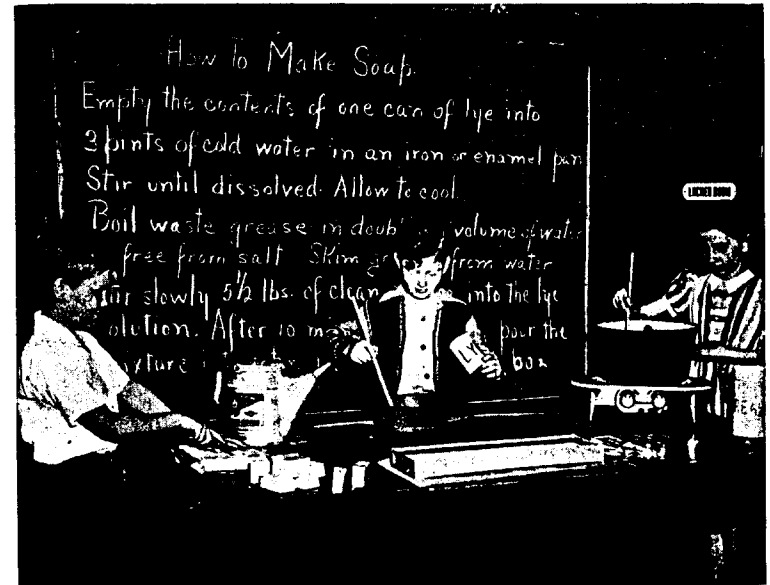 How To Make Soap.
Empty the contents of one can of lye into
3 pints of cold water in an iron or enamel pan
Stir until dissolved. Allow to cool.
Boil waste grease in volume of water
free from salt. Skim from water
slowly 5½ lbs. of clean into the lye
After 10 pour the
box
LYE